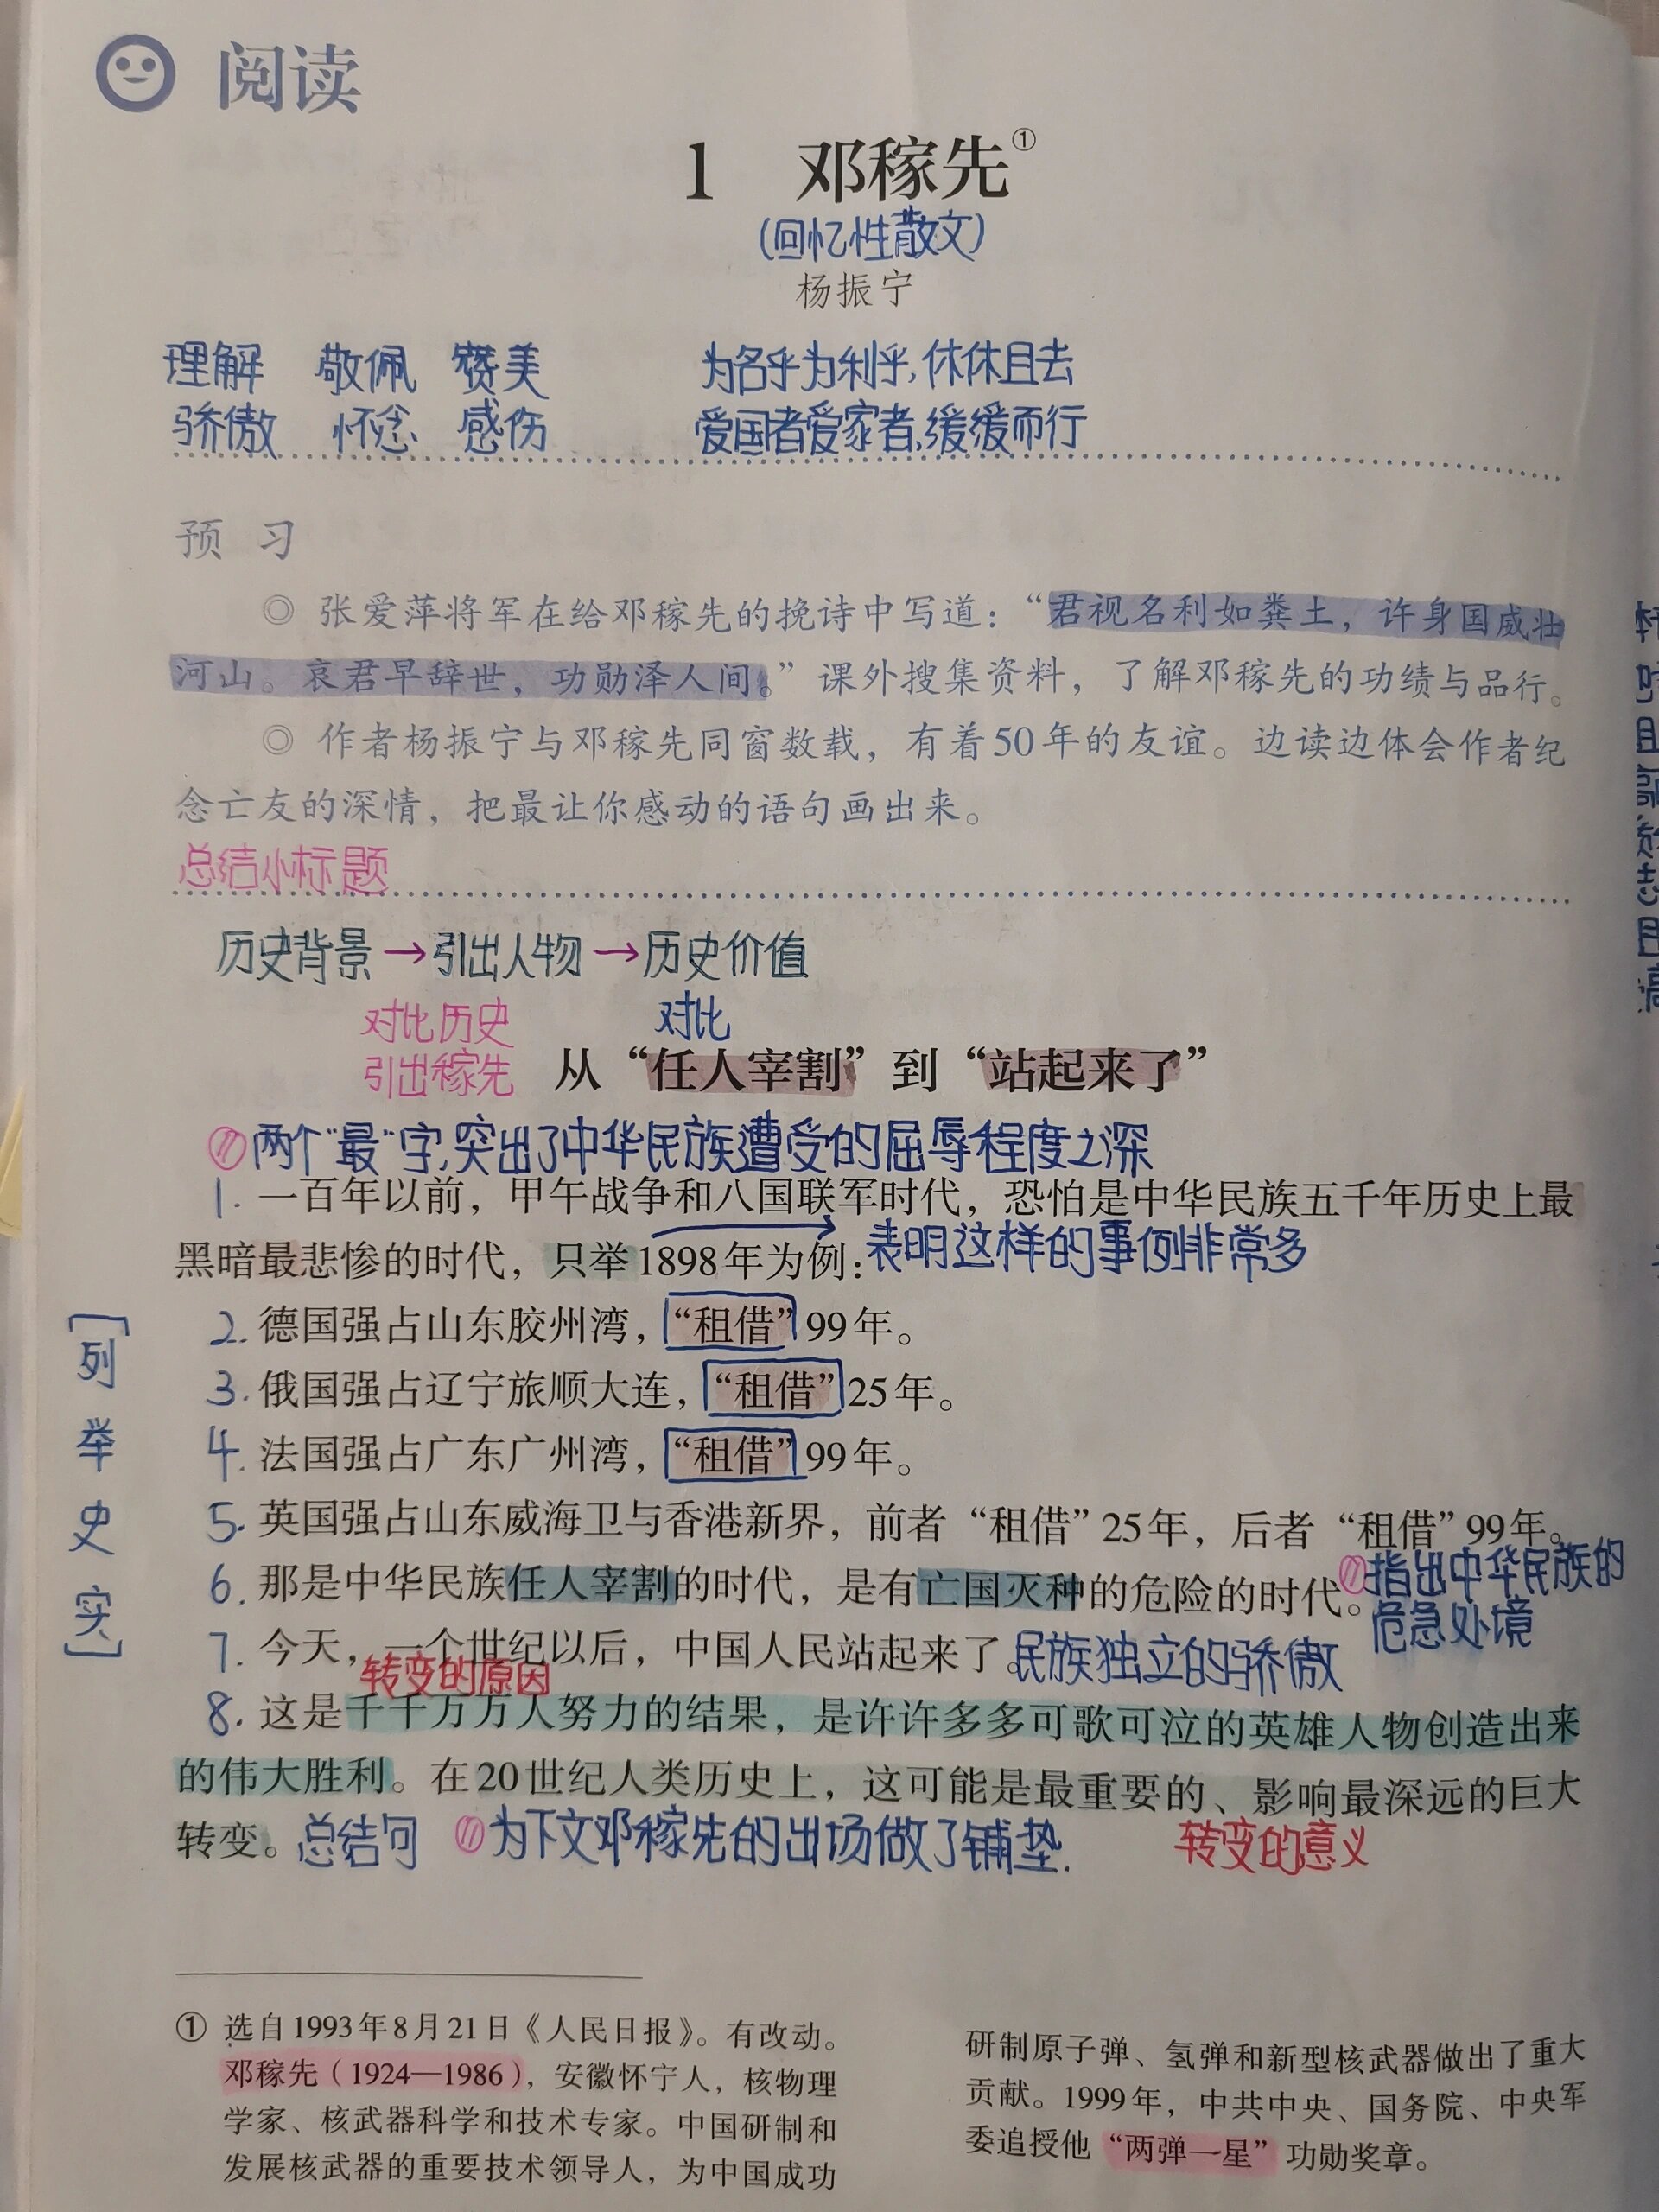 阅读
1 邓稼先①
(回忆性散文)
杨振宁
理解 敬佩 赞美 为名乎为利乎,休休且去
骄傲 怀念 感伤 爱国者爱家者,缓缓而行
预 习
◎ 张爱萍将军在给邓稼先的挽诗中写道：“君视名利如粪土，许身国威壮
河山。哀君早辞世，功勋泽人间。”课外搜集资料，了解邓稼先的功绩与品行。
◎ 作者杨振宁与邓稼先同窗数载，有着50年的友谊。边读边体会作者纪
念亡友的深情，把最让你感动的语句画出来。
总结小标题
历史背景→引出人物→历史价值
对比历史 对比
引出稼先
从“任人宰割”到“站起来了”
两个"最"字,突出了中华民族遭受的屈辱程度之深
1. 一百年以前，甲午战争和八国联军时代，恐怕是中华民族五千年历史上最
黑暗最悲惨的时代，只举1898年为例：表明这样的事例非常多
[列举史实]
2. 德国强占山东胶州湾，“租借”99年。
3. 俄国强占辽宁旅顺大连，“租借”25年。
4. 法国强占广东广州湾，“租借”99年。
5. 英国强占山东威海卫与香港新界，前者“租借”25年，后者“租借”99年。
6. 那是中华民族任人宰割的时代，是有亡国灭种的危险的时代。
指出中华民族的
危急处境
7. 今天，一个世纪以后，中国人民站起来了。民族独立的骄傲
转变的原因
8. 这是千千万万人努力的结果，是许许多多可歌可泣的英雄人物创造出来
的伟大胜利。在20世纪人类历史上，这可能是最重要的、影响最深远的巨大
转变。总结句 为下文邓稼先的出场做了铺垫. 转变的意义
① 选自1993年8月21日《人民日报》。有改动。
邓稼先（1924—1986），安徽怀宁人，核物理
学家、核武器科学和技术专家。中国研制和
发展核武器的重要技术领导人，为中国成功
研制原子弹、氢弹和新型核武器做出了重大
贡献。1999年，中共中央、国务院、中央军
委追授他“两弹一星”功勋奖章。